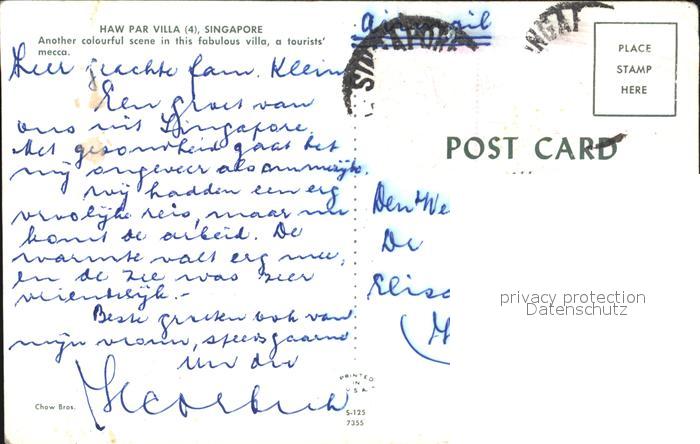 HAW PAR VILLA (4), SINGAPORE
Another colourful scene in this fabulous villa, a tourists'
mecca.
Zeer geachte fam. Klein
Een groet van
ons uit Singapore.
Met gezondheid gaat het
mij ongeveer als
Wij hadden een erg
vrolijke reis, maar nu
komt de arbeid. De
warmte valt erg mee,
en de zee was zeer
vriendelijk.-
Beste groeten ook van
mijn vrouw, steeds gaarne
Uw dw
Chow Bros.
air mail
SINGAPORE
PLACE
STAMP
HERE
POST CARD
Den We
De
Elisa
PRINTED IN
U.S.A.
S-125
7355
privacy protection
Datenschutz